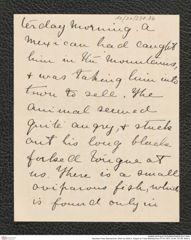 terday morning. A
Mexican had caught
him in the mountains,
& was taking him into
town to sell. The
animal seemed
quite angry, & stuck
out his long black
forked tongue at
us. There is a small
oviparous fish, which
is found only in